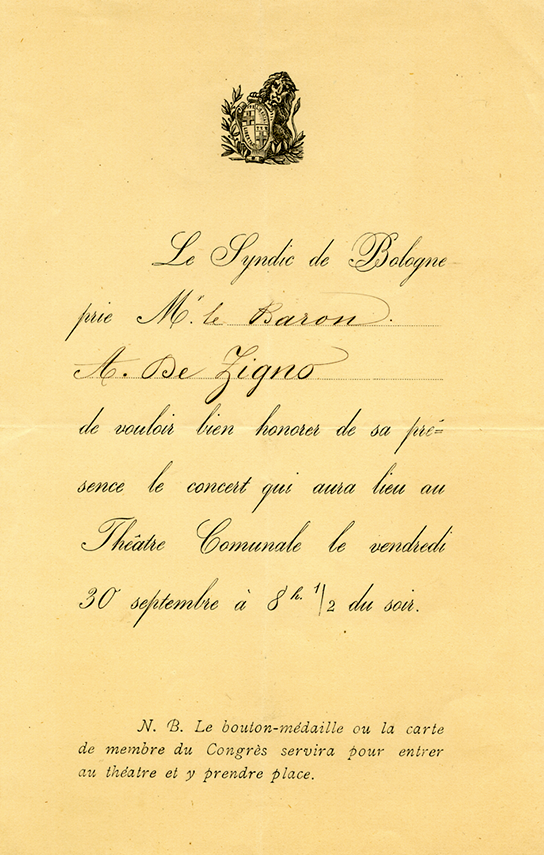 Le Syndic de Bologne
prie Mr. le Baron
A. De Zigno
de vouloir bien honorer de sa pré=
sence le concert qui aura lieu au
Théâtre Comunale le vendredi
30 septembre à 8 h. 1/2 du soir.
N. B. Le bouton-médaille ou la carte
de membre du Congrès servira pour entrer
au théatre et y prendre place.